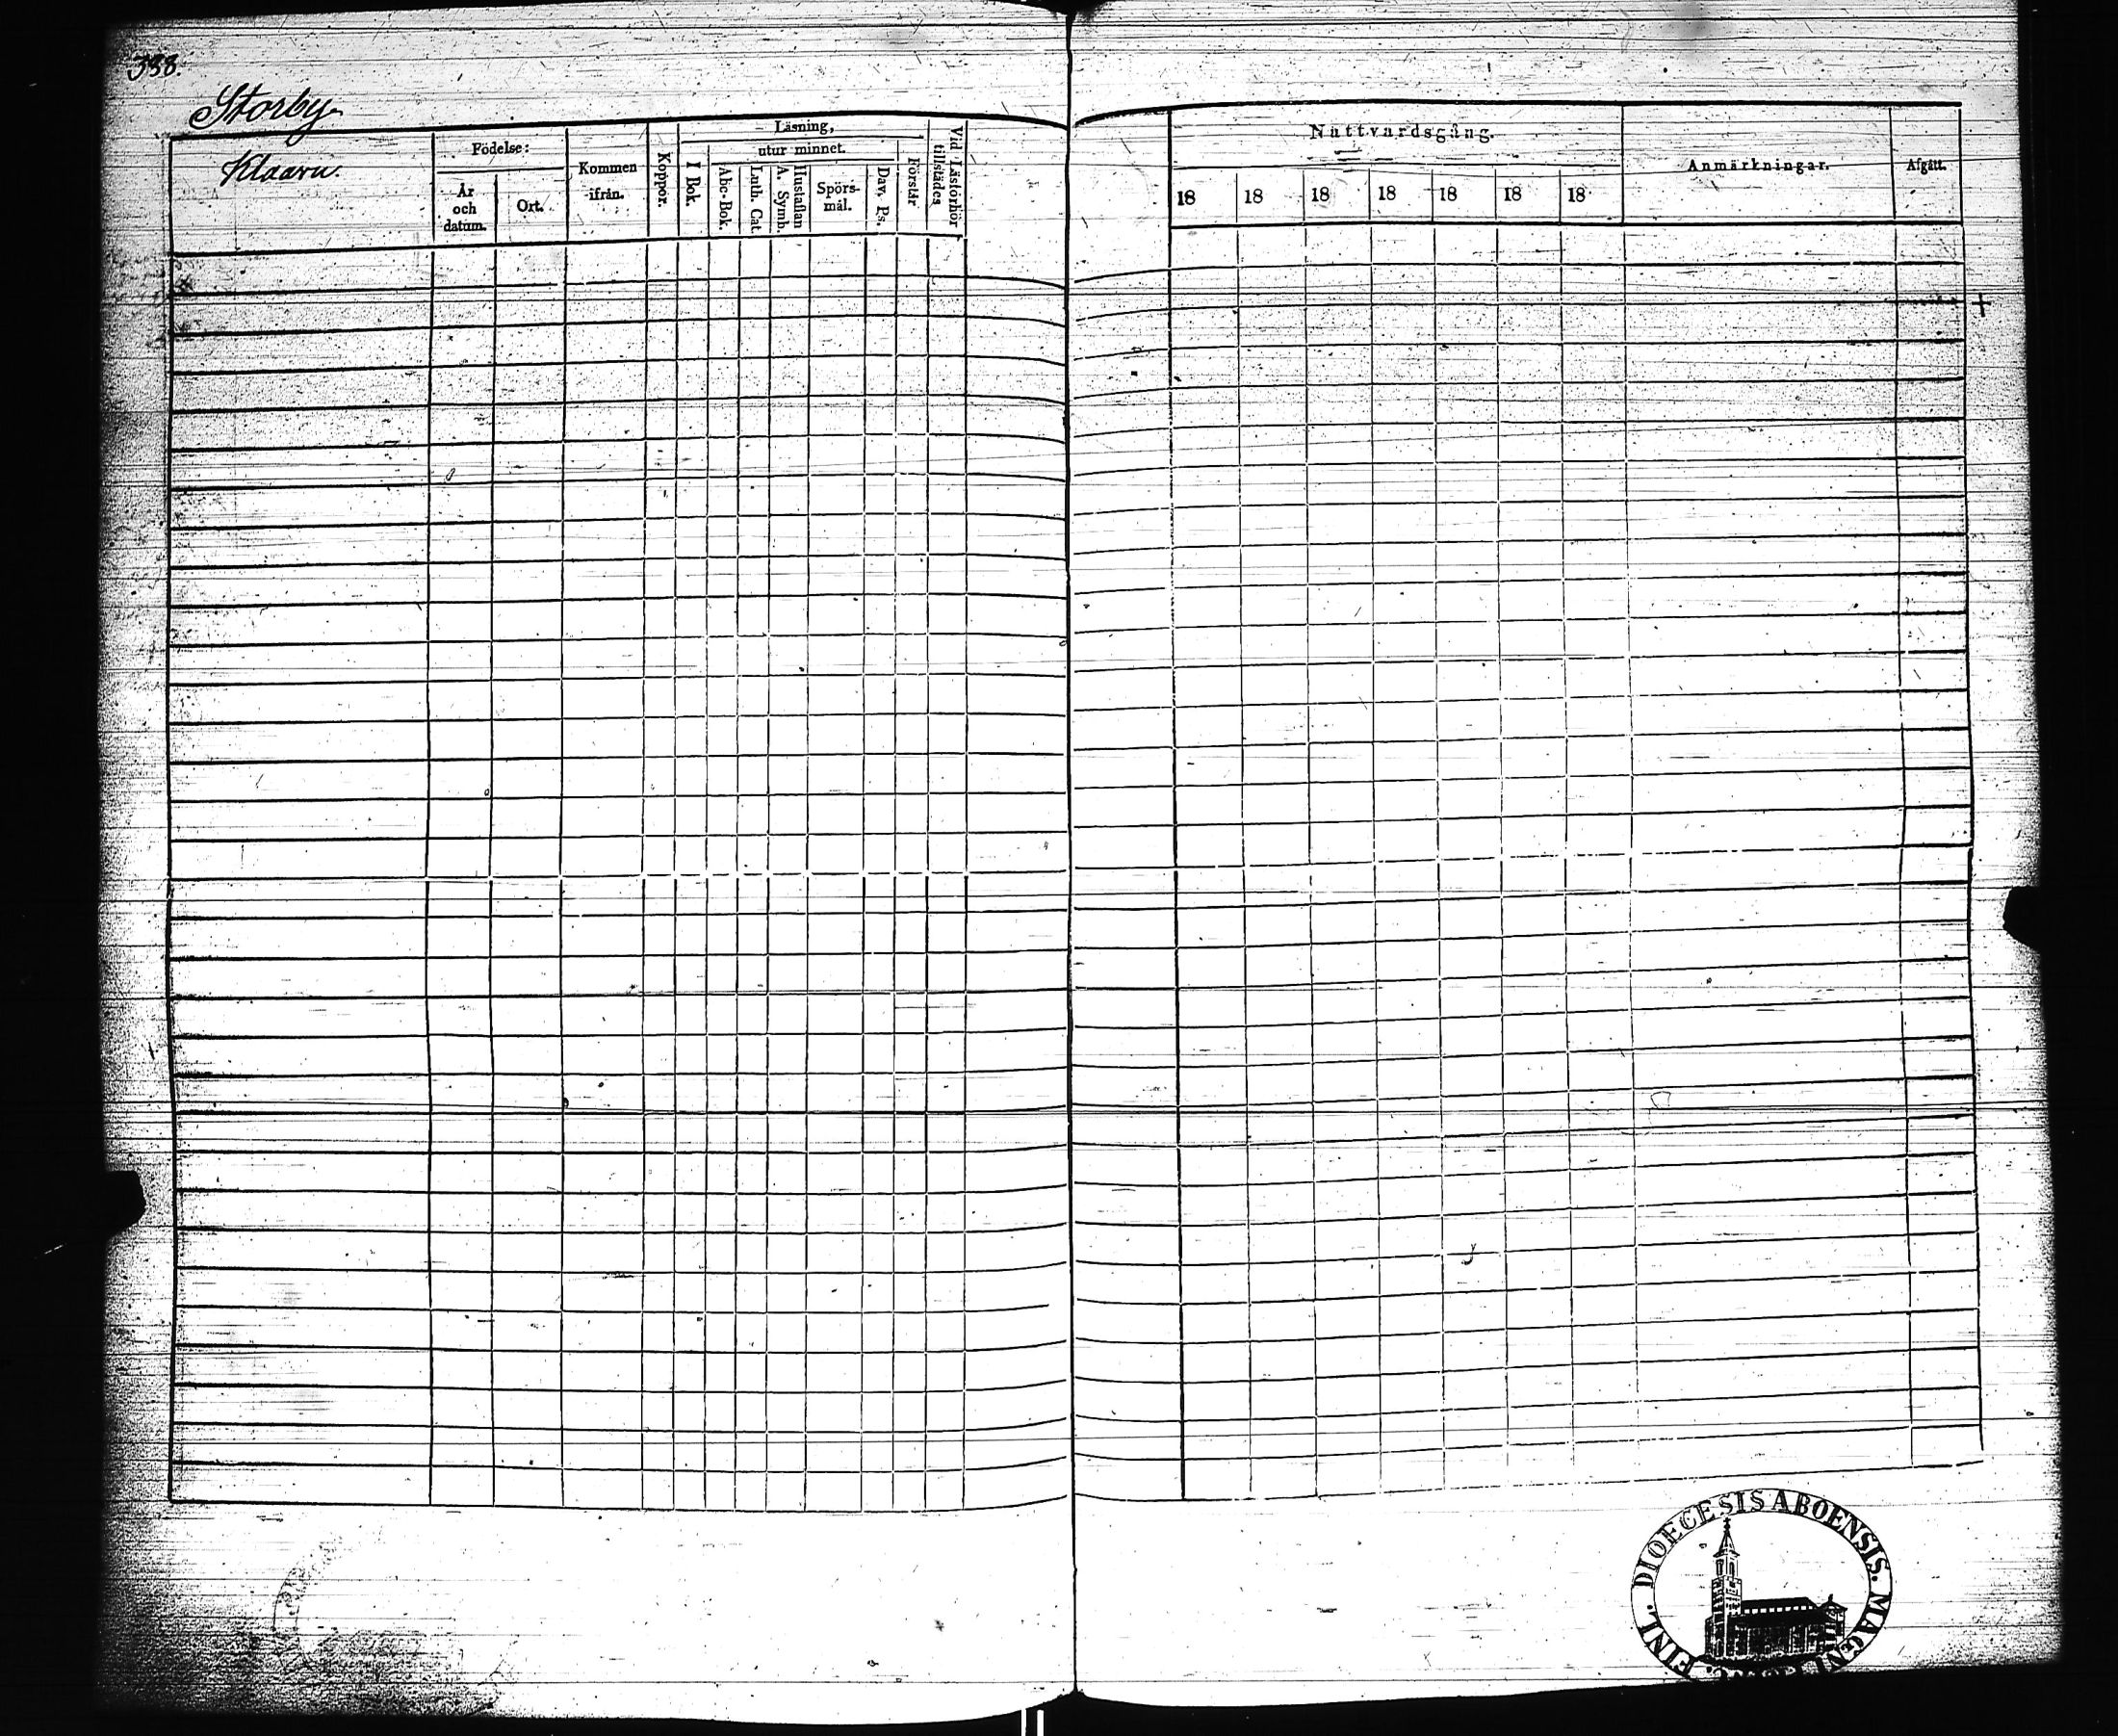 338.
Storby
Klaavu.
Födelse:
År och datum.
Ort.
Kommen ifrån.
Koppor.
Läsning,
I Bok.
utur minnet.
Abc-Bok.
Luth. Cat.
Hustaflan A. Symb.
Spörs-mål.
Dav. Ps.
Förstår
Vid Läsförhör tillstädes
Nattvardsgång.
18 18 18 18 18 18 18
Anmärkningar.
Afgått.
DIOECESIS ABOENSIS. MAGNI FINL.